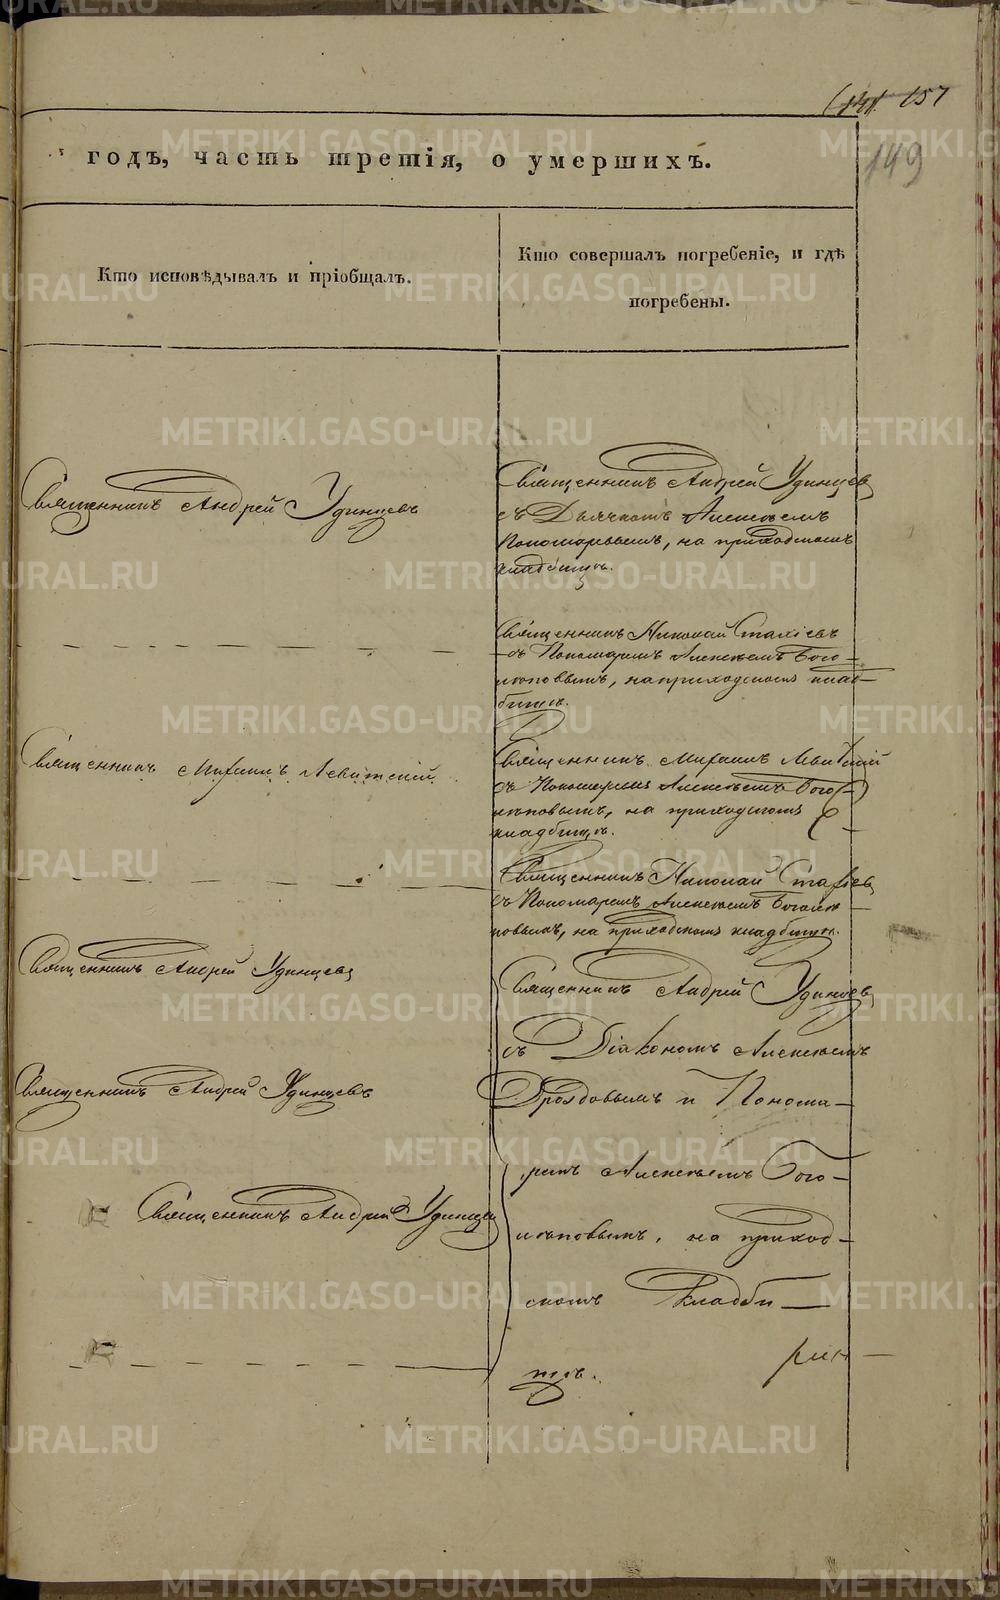 157
149
годъ, часть третія, о умершихъ.
Кто исповѣдывалъ и пріобщалъ.
Кто совершалъ погребеніе, и гдѣ
погребены.
Священникъ Андрей Удинцевъ
Священникъ Андрей Удинцев
съ Дьячкомъ Алексѣемъ
Пономаревымъ, на приходскомъ
кладбищѣ.
Священникъ Николай Стахіевъ
съ Пономаремъ Алексѣемъ Бого-
любовымъ, на приходскомъ клад-
бищѣ.
Священникъ Михаилъ Левитскій
Священникъ Михаилъ Левитскій
съ Пономаремъ Алексѣемъ Бого-
на приходскомъ
кладбищѣ.
Священникъ Николай
съ Пономаремъ Алексѣемъ Боголю
повымъ, на приходскомъ кладбищѣ.
Священникъ Андрей Удинцевъ
Священникъ Андрей Удинцевъ
съ Діакономъ Алексѣемъ
Священникъ Андрей Удинцевъ
Дроздовымъ и Понома-
ремъ Алексѣемъ Бого-
Священникъ Андрей Удинцев
на приход-
скомъ Кладби-
щѣ.
METRIKI.GASO-URAL.RU